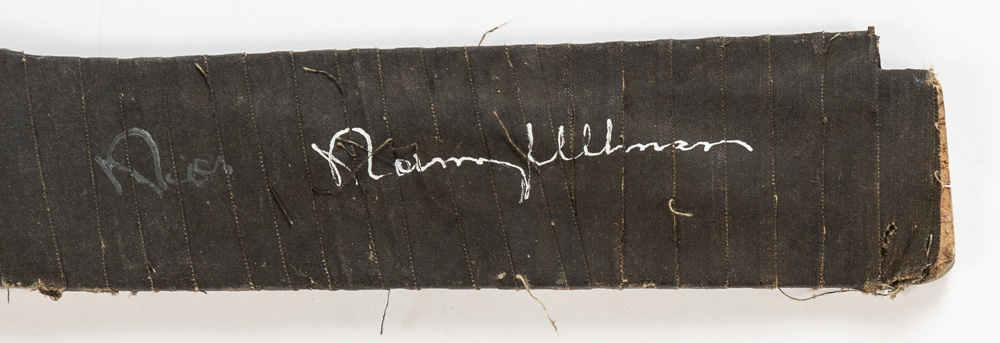 Norm Ullman